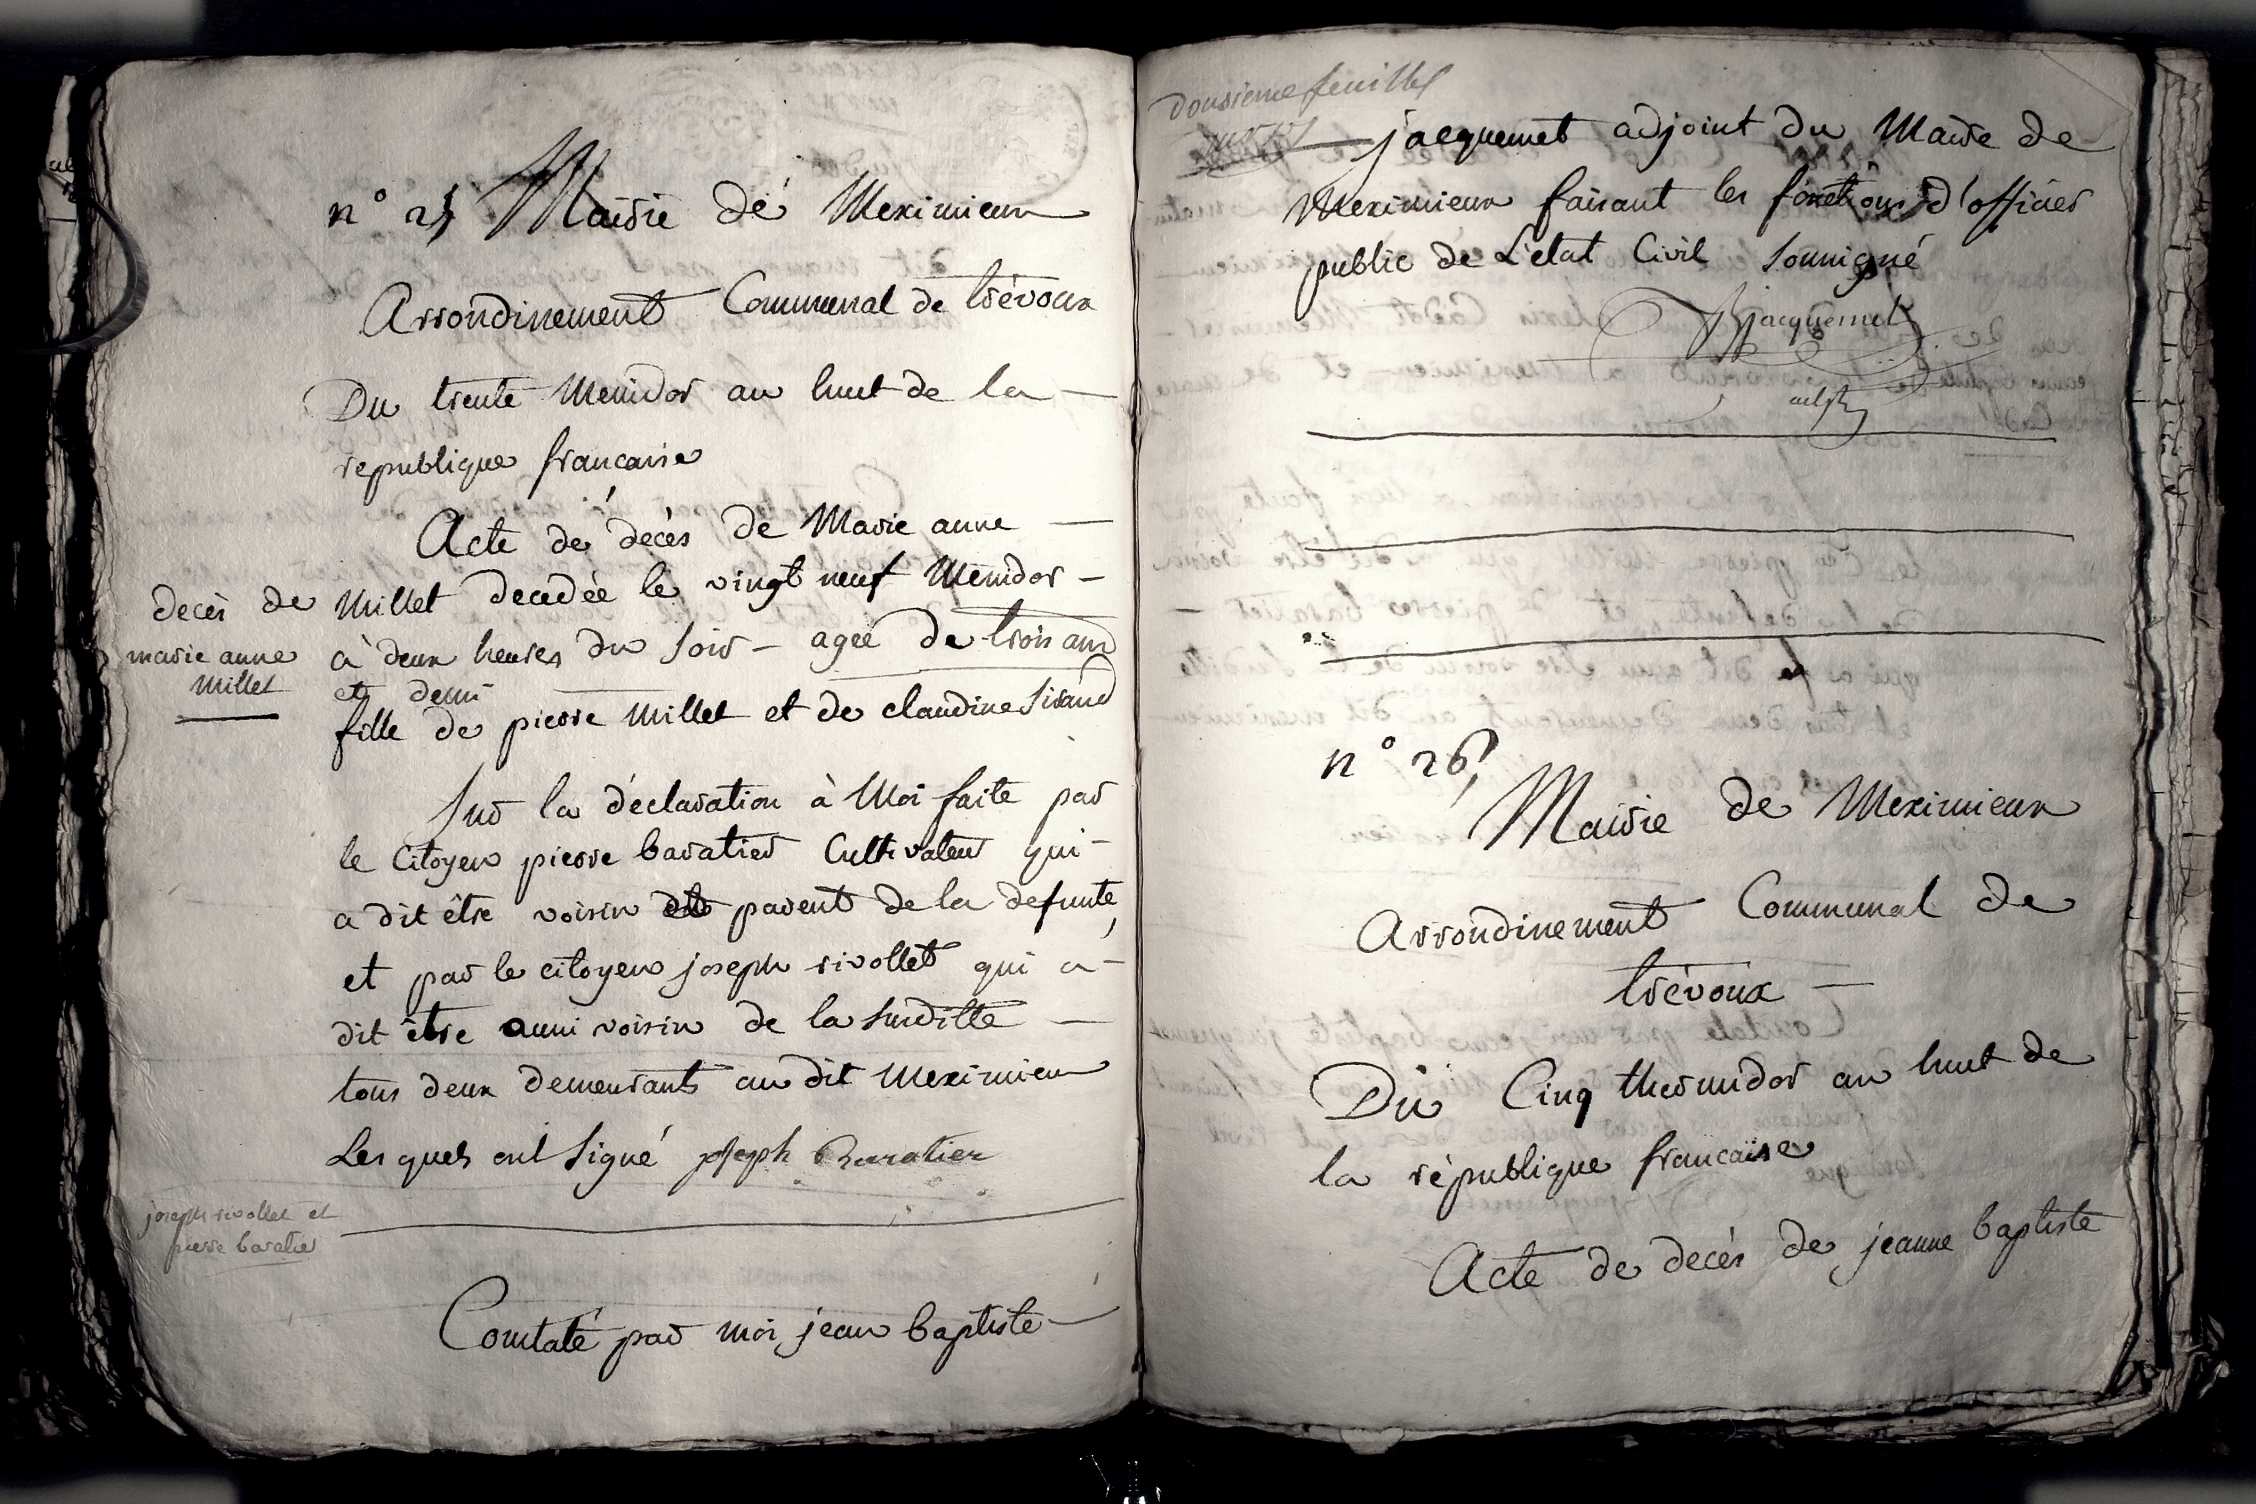 n° 25 Mairie de Meximieux
Arrondissement Communal de trévoux
Du trente Messidor an huit de la
republique francaise
Acte de décès de Marie anne
decès de
marie anne
Millet
Millet decedée le vingt neuf Messidor
à deux heures du soir - agée de trois ans
et demi
fille de pierre Millet et de claudine Sirand
Sur la déclaration à Moi faite par
le Citoyen pierre baratier Cultivateur qui
a dit être voisin parent de la defunte,
et par le citoyen joseph rivollet qui a
dit être aussi voisin de la surditte
tous deux demeurants au dit Meximieux
Lesquels ont Signé joseph Baratier
joseph rivollet et
pierre baratier
Constaté par moi jean baptiste
Dousieme feuillet
jacquemet adjoint du Maire de
Meximieux faisant les fonctions d'officier
public de L'etat Civil soussigné
Jacquemet
adjt
n° 26,
Mairie de Meximieux
Arrondissement Communal de
trévoux
Du Cinq thermidor an huit de
la république francaise
Acte de decès de jeanne baptiste